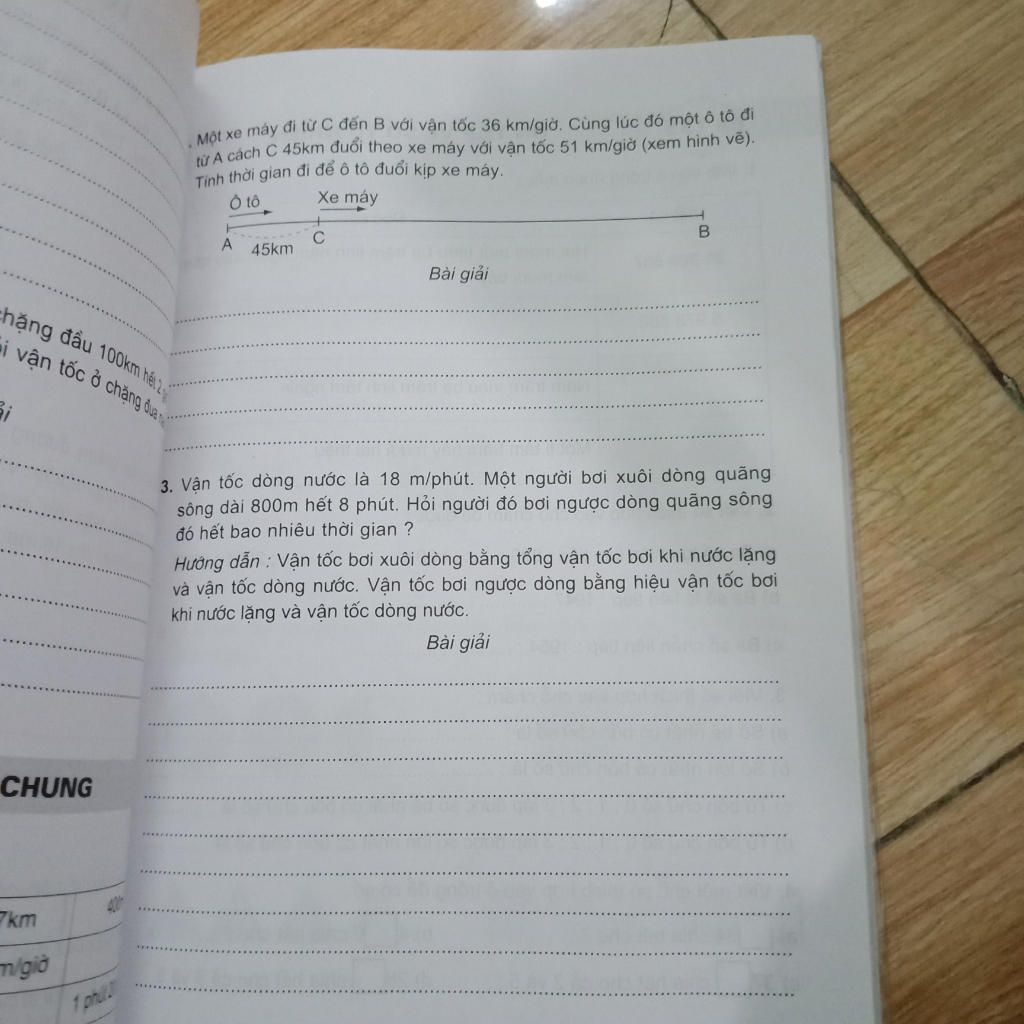 chặng đầu 100km hết 2
vận tốc ở chặng đua
CHUNG
7km
m/giờ
1 phút
. Một xe máy đi từ C đến B với vận tốc 36 km/giờ. Cùng lúc đó một ô tô đi
từ A cách C 45km đuổi theo xe máy với vận tốc 51 km/giờ (xem hình vẽ).
Tính thời gian đi để ô tô đuổi kịp xe máy.
Ô tô Xe máy
A 45km C B
Bài giải
3. Vận tốc dòng nước là 18 m/phút. Một người bơi xuôi dòng quãng
sông dài 800m hết 8 phút. Hỏi người đó bơi ngược dòng quãng sông
đó hết bao nhiêu thời gian ?
Hướng dẫn : Vận tốc bơi xuôi dòng bằng tổng vận tốc bơi khi nước lặng
và vận tốc dòng nước. Vận tốc bơi ngược dòng bằng hiệu vận tốc bơi
khi nước lặng và vận tốc dòng nước.
Bài giải